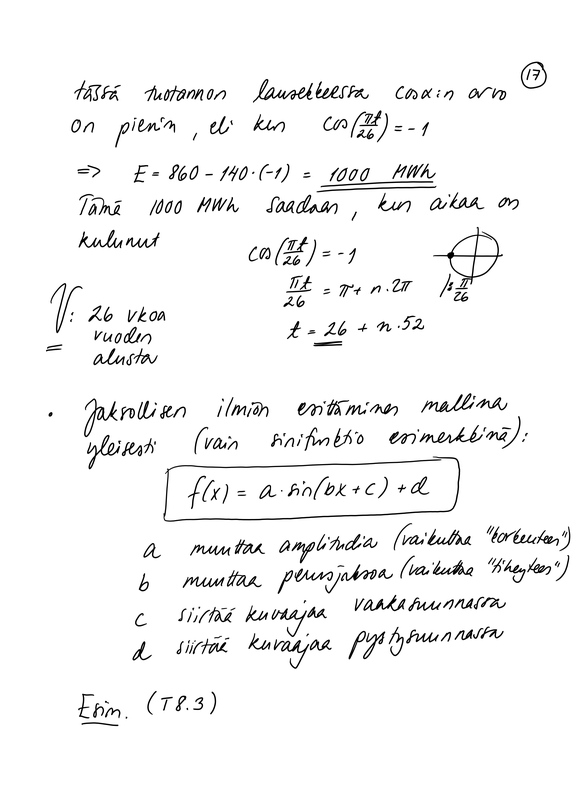 17
tässä tuotannon lausekkeessa cosα:n arvo
on pienin, eli kun cos(πt/26) = -1
=> E = 860 - 140·(-1) = 1000 MWh
Tämä 1000 MWh saadaan, kun aikaa on
kulunut
cos(πt/26) = -1
πt/26 = π + n·2π |: π/26
t = 26 + n·52
V: 26 vkoa
vuoden
alusta
• Jaksollisen ilmiön esittäminen mallina
yleisesti (vain sinifunktio esimerkkinä):
f(x) = a·sin(bx+c) + d
a muuttaa amplitudia (vaikuttaa "korkeuteen")
b muuttaa perusjaksoa (vaikuttaa "tiheyteen")
c siirtää kuvaajaa vaakasuunnassa
d siirtää kuvaajaa pystysuunnassa
Esim. (T8.3)